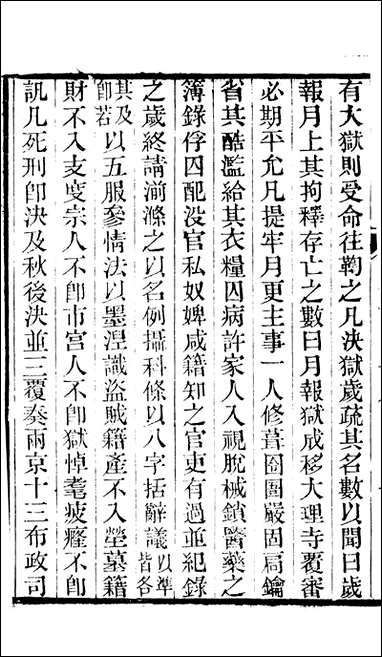 有大獄則受命往鞫之凡決獄歲疏其名數以聞曰歲
報月上其拘釋存亡之數曰月報獄成移大理寺覆審
必期平允凡提牢月更主事一人修葺囹圄嚴固扃鑰
省其酷濫給其衣糧囚病許家人入視脫械鎖醫藥之
簿錄俘囚配沒官私奴婢咸籍知之官吏有過並紀錄
之歲終請湔滌之以名例攝科條以八字括辭議以準皆各
其及卽若以五服參情法以墨涅識盜賊籍產不入塋墓籍
財不入支度宗人不卽市宮人不卽獄悼耄疲癃不卽
訊凡死刑卽決及秋後決並三覆奏兩京十三布政司